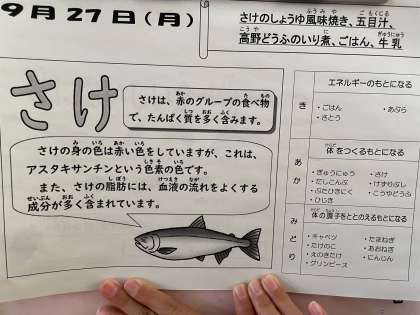 9月27日(月)
さけのしょうゆ風味焼き、五目汁、
高野どうふのいり煮、ごはん、牛乳
さけ
さけは、赤のグループの食べ物
で、たんぱく質を多く含みます。
さけの身の色は赤い色をしていますが、これは、
アスタキサンチンという色素の色です。
また、さけの脂肪には、血液の流れをよくする
成分が多く含まれています。
き
エネルギーのもとになる
・ごはん ・あぶら
・さとう
あか
体をつくるもとになる
・ぎゅうにゅう ・さけ
・だしこんぶ ・けずりぶし
・ぶたひきにく ・こうやどうふ
・ひじき
みどり
体の調子をととのえるもとになる
・キャベツ ・たまねぎ
・たけのこ ・あおねぎ
・えのきたけ ・にんじん
・グリンピース